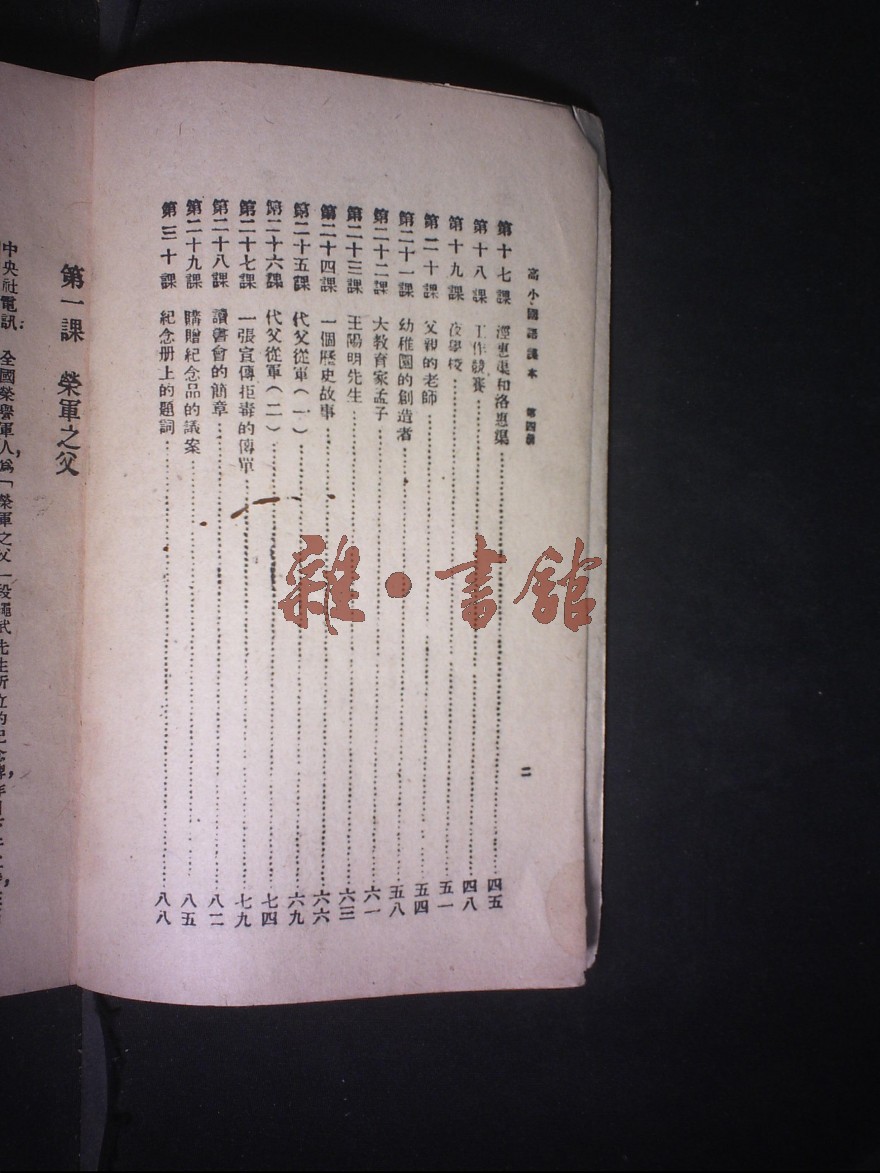 高小國語課本 第四冊
二
第十七課 涇惠渠和洛惠渠 四五
第十八課 工作競賽 四八
第十九課 夜學校 五一
第二十課 父親的老師 五四
第二十一課 幼稚園的創造者 五八
第二十二課 大教育家孟子 六一
第二十三課 王陽明先生 六三
第二十四課 一個歷史故事 六六
第二十五課 代父從軍(一) 六九
第二十六課 代父從軍(二) 七四
第二十七課 一張宣傳拒毒的傳單 七九
第二十八課 讀書會的簡章 八二
第二十九課 購贈紀念品的議案 八五
第三十課 紀念册上的題詞 八八
第一課 榮軍之父
中央社電訊:全國榮譽軍人,爲「榮軍之父」段繩武先生所立的紀念碑,
雜·書館